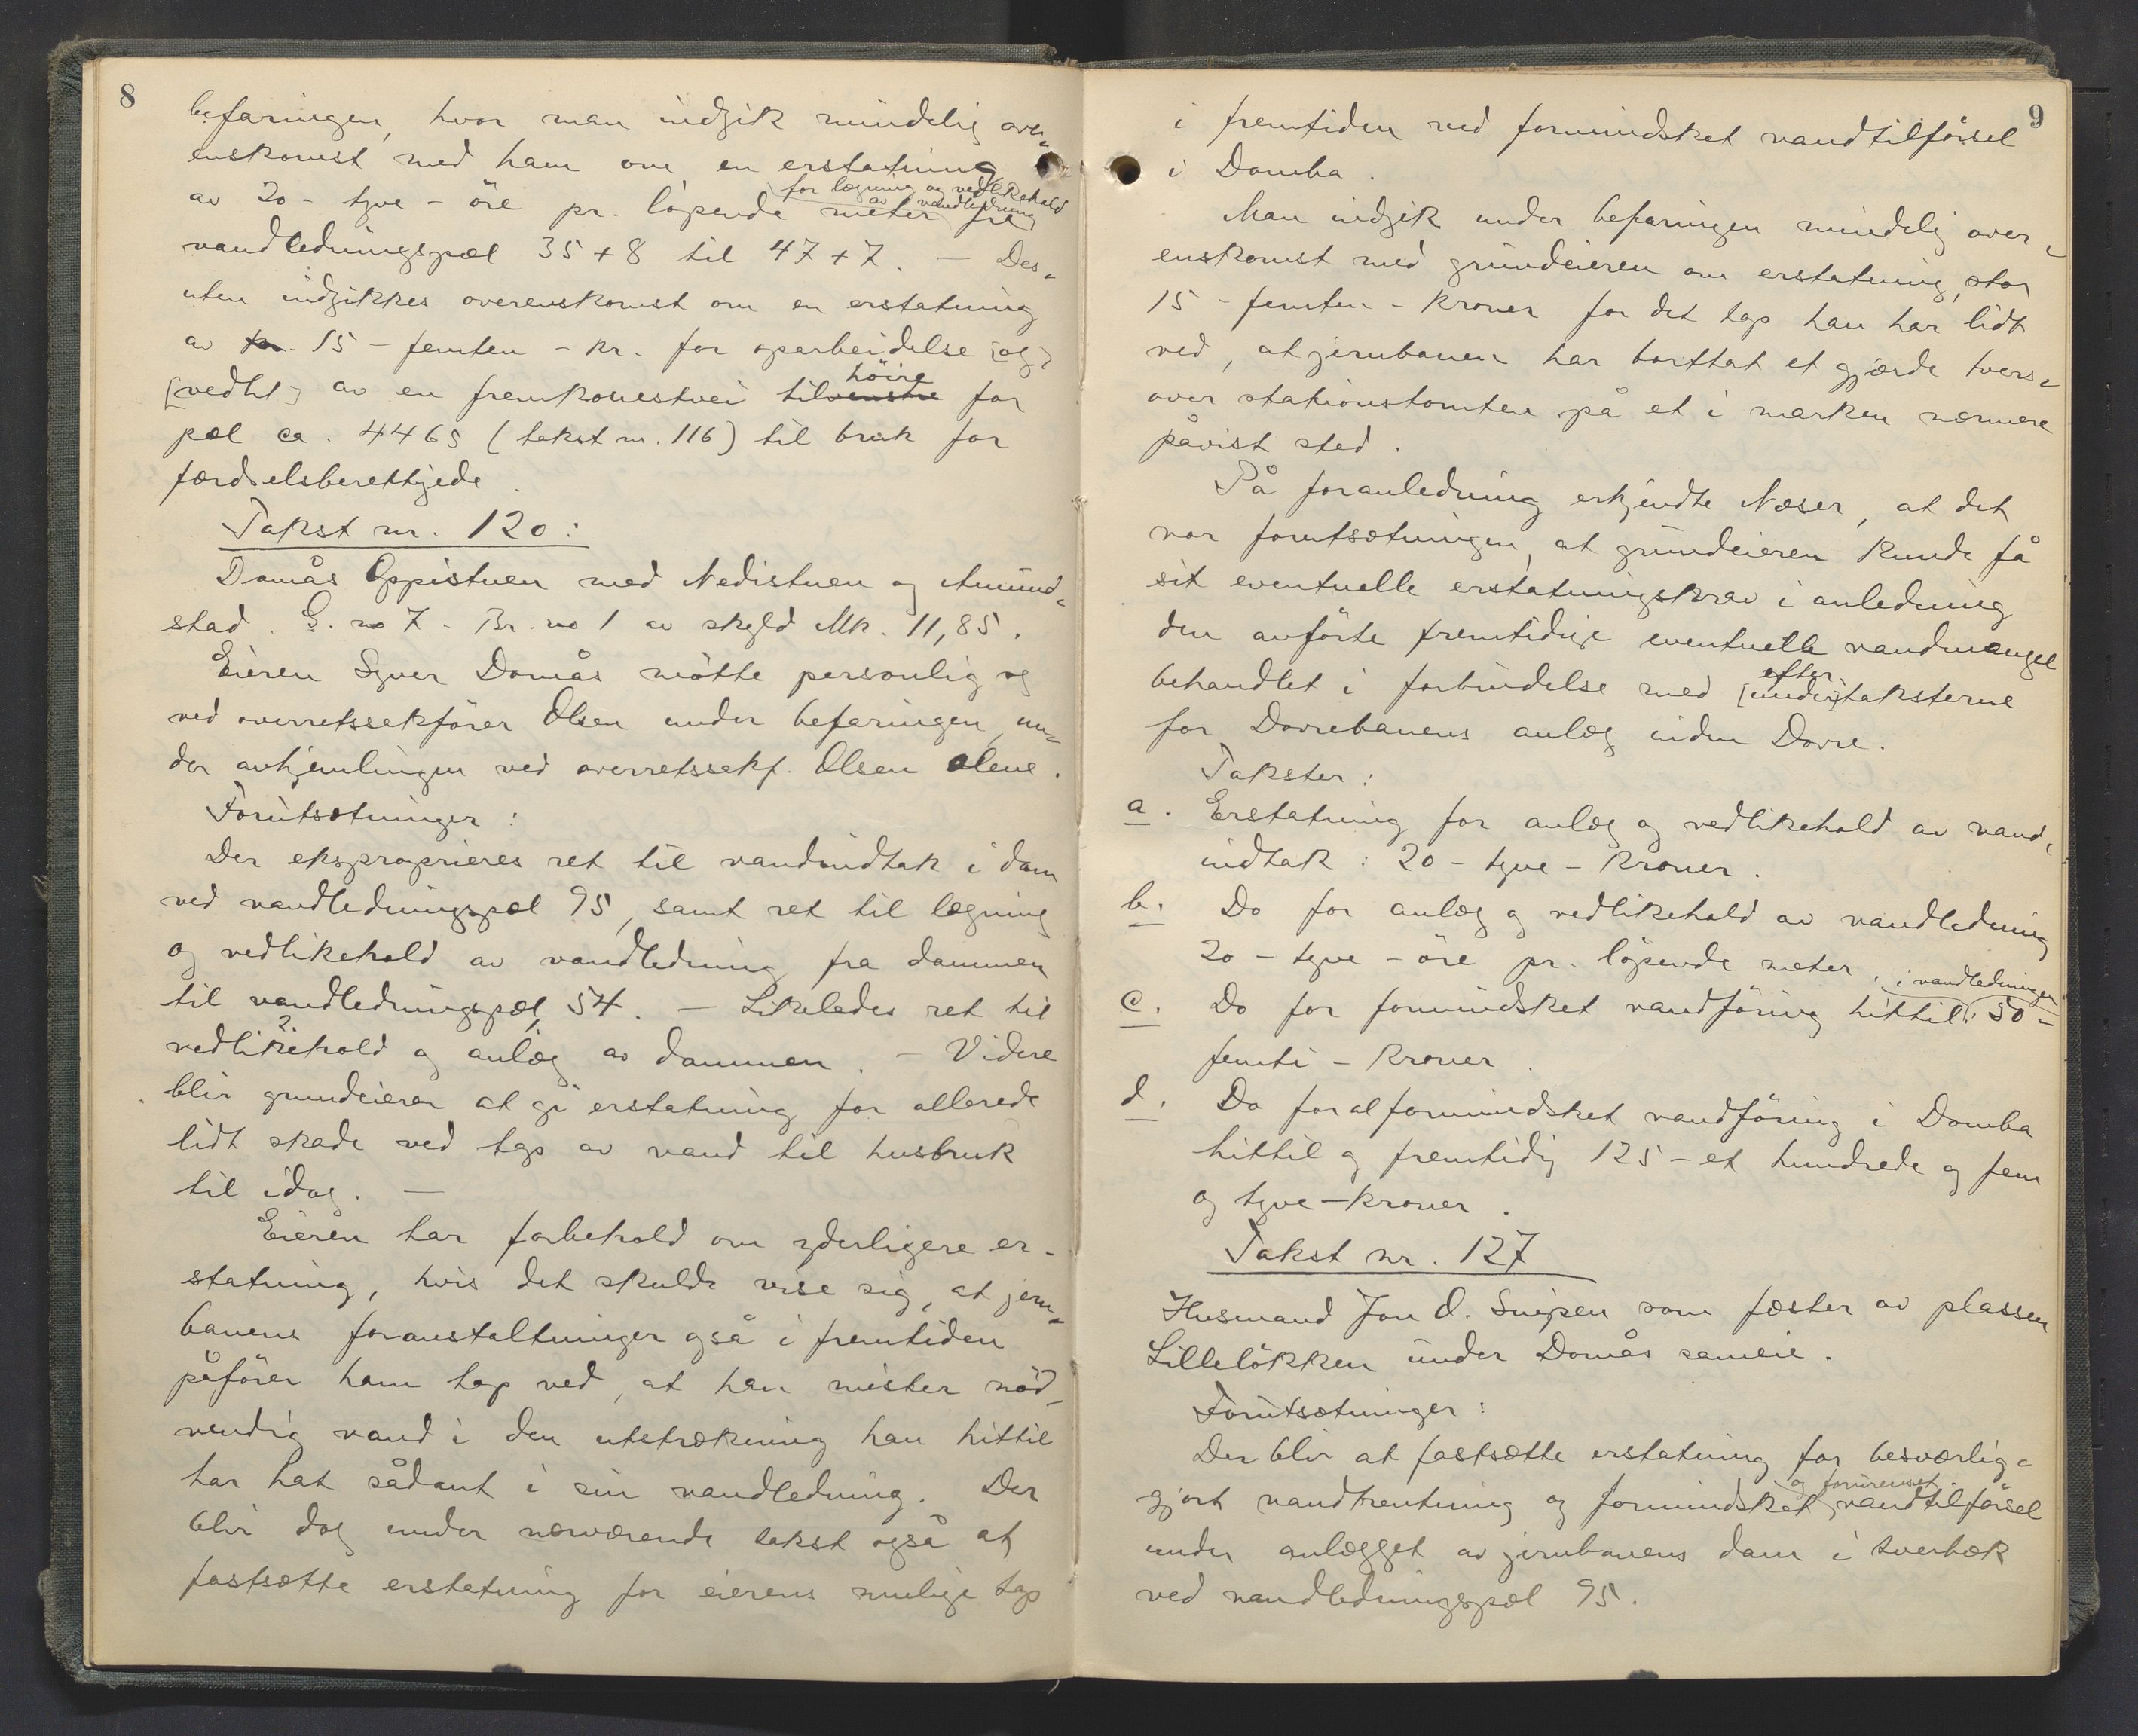 8
befaringen, hvor man indgik mindelig over-
enskomst med ham om en erstatning
for lægning og vedlikehold
av vandledning
av 20 - tyve - öre pr. löpende meter fra
vandledningspæl 35 + 8 til 47 + 7. — Des-
uten indgikkes overenskomst om en erstatning
av kr. 15 - femten - kr. for oparbeidelse [og]
höire
[vedlh] av en fremkomstvei til venstre for
pæl ca. 4465 (takst nr. 116) til bruk for
færdselsberettigede.
Takst nr. 120:
Domås Oppistuen med Nedistuen og Amund-
stad. G. no 7 - Br. no 1 av skyld Mk. 11,85.
Eieren Syver Domås mötte personlig og
ved overretssakförer Olsen under befaringen, un-
der avhjemlingen ved overretssakf. Olsen alene.
Forutsætninger:
Der eksproprieres ret til vandindtak i dam
ved vandledningspæl 95, samt ret til lægning
og vedlikehold av vandledning fra dammen
til vandledningspæl 54. — Likeledes ret til
vedlikehold og anlæg av dammen. — Videre
blir grundeieren at gi erstatning for allerede
lidt skade ved tap av vand til husbruk
til idag. —
Eieren har forbehold om yderligere er-
statning, hvis det skulde vise sig, at jern-
banens foranstaltninger også i fremtiden
påförer ham tap ved, at han mister nöd-
vendig vand i den utstrækning han hittil
har hat sådant i sin vandledning. Der
blir dog under nærværende takst også at
fastsætte erstatning for eierens mulige tap
9
i fremtiden ved formindsket vandtilförsel
i Domba.
Man indgik under befaringen mindelig over-
enskomst med grundeieren om erstatning, stor
15 - femten - kroner for det tap han har lidt
ved, at jernbanen har borttat et gjærde tvers-
over stationstomten på et i marken nærmere
påvist sted.
På foranledning erkjendte Næser, at det
var forutsætningen, at grundeieren kunde få
sit eventuelle erstatningskrav i anledning
den anförte fremtidige eventuelle vandmangel
efter
behandlet i forbindelse med [under] taksterne
for Dovrebanens anlæg inden Dovre.
Takster:
a. Erstatning for anlæg og vedlikehold av vand-
indtak: 20 - tyve - kroner.
b. Do for anlæg og vedlikehold av vandledning
20 - tyve - öre pr. löpende meter.
i vandledningen
c. Do for formindsket vandföring hittil: 50 -
femti - kroner.
d. Do for al formindsket vandföring i Domba
hittil og fremtidig 125 - et hundrede og fem
og tyve - kroner.
Takst nr. 127
Husmand Jon O. Snipen som fæster av plassen
Lillelökken under Domås sameie.
Forutsætninger:
Der blir at fastsætte erstatning for besværlig-
og forurenset
gjort vandhentning og formindsket vandtilförsel
under anlægget av jernbanens dam i tverbæk
ved vandledningspæl 95.